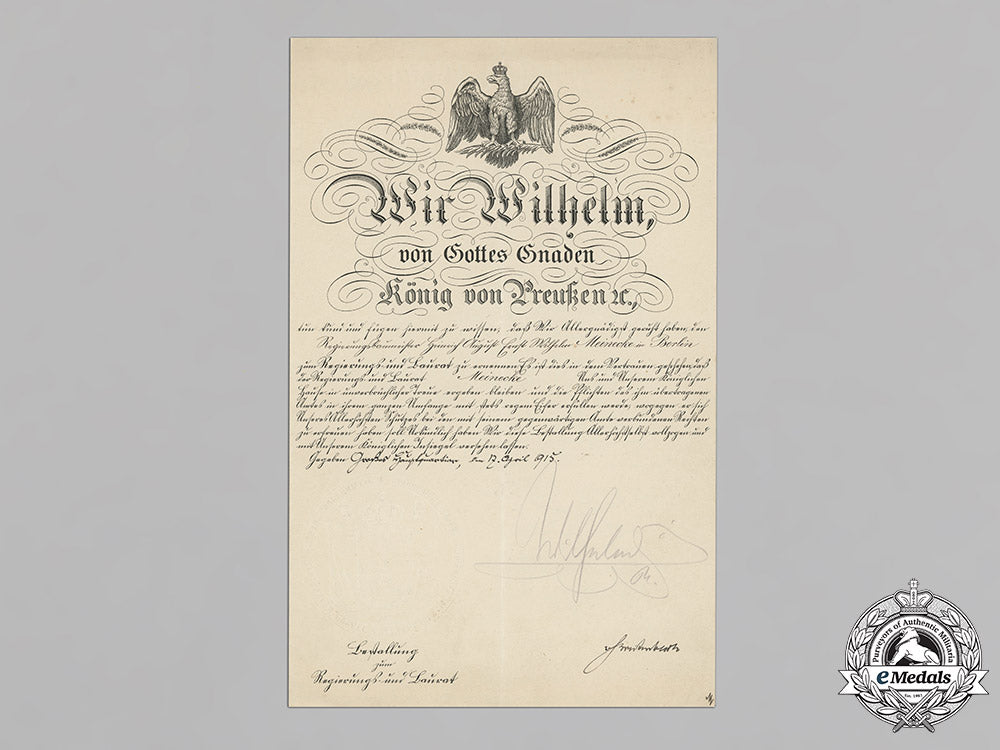 Wir Wilhelm,
von Gottes Gnaden
König von Preußen ꝛc.,
tun kund und fügen hiermit zu wissen, daß Wir Allergnädigst geruht haben, den
Regierungsbaumeister Heinrich August Ernst Wilhelm Meinecke in Berlin
zum Regierungs- und Baurat zu ernennen. Es ist dies in dem Vertrauen geschehen, daß
der Regierungs- und Baurat Meinecke Uns und Unserem Königlichen
Hause in unverbrüchlicher Treue ergeben bleiben und die Pflichten des ihm übertragenen
Amtes in ihrem ganzen Umfange mit stets regem Eifer erfüllen werde, wogegen er sich
Unseres Allerhöchsten Schutzes bei den mit seinem gegenwärtigen Amte verbundenen Rechten
zu erfreuen haben soll. Urkundlich haben Wir diese Bestallung Allerhöchstselbst vollzogen und
mit Unserem Königlichen Insiegel versehen lassen.
Gegeben Großes Hauptquartier, den 17. April 1915.
Wilhelm
R.
Bestallung
zum
Regierungs- und Baurat
Purveyors of Authentic Militaria
eMedals
Est. 1967